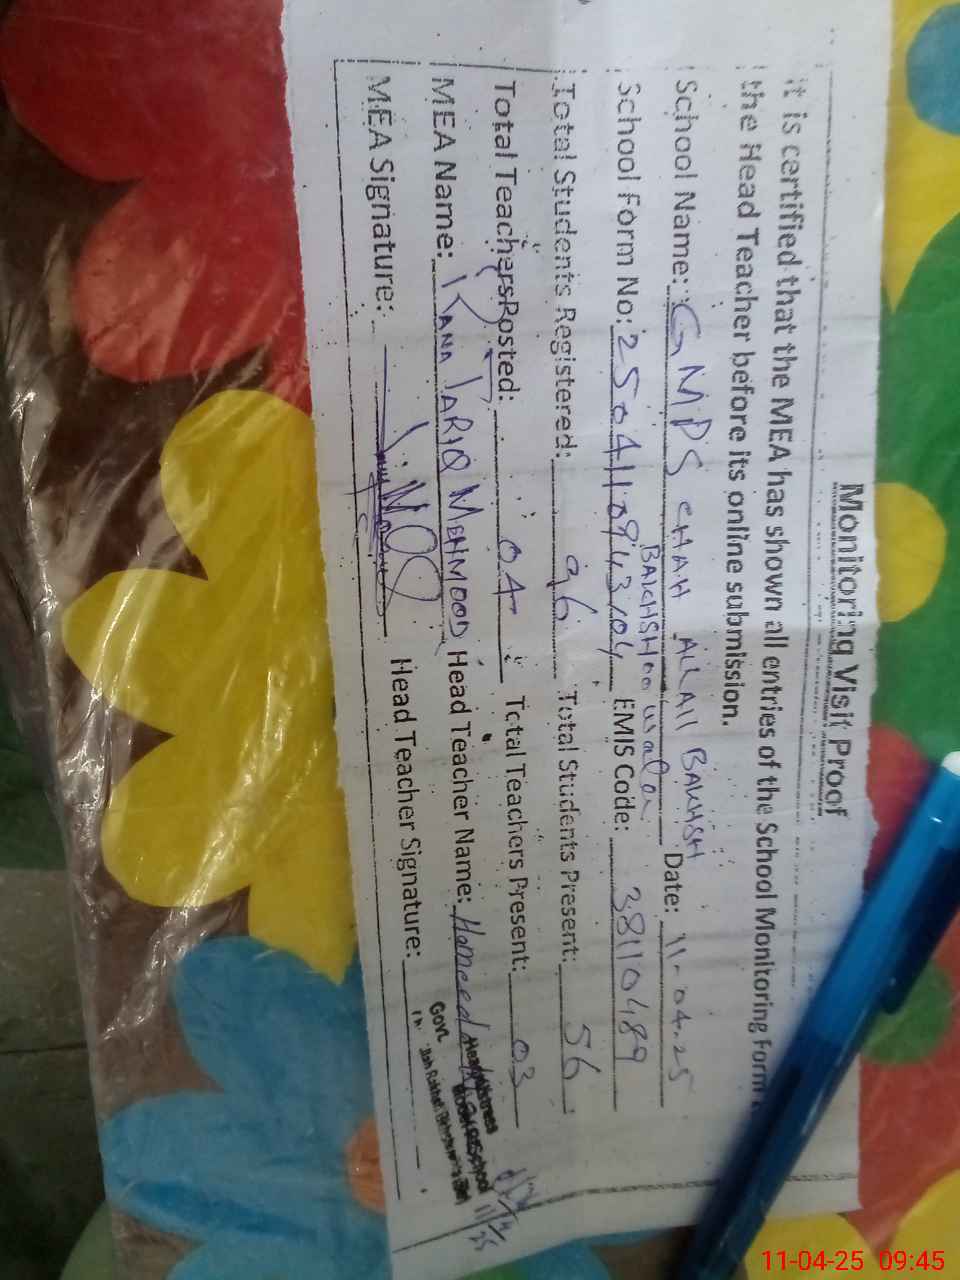 Monitoring Visit Proof
it is certified that the MEA has shown all entries of the School Monitoring Form
the Head Teacher before its online submission.
School Name: GMPS CHAH ALLAH BAKHSH Date: 11-04-25
BAKHSHOO wala
School Form No: 2504110943104 EMIS Code: 38110489
Total Students Registered: 96 Total Students Present: 56
Total Teachers Posted: 04 Total Teachers Present: 03
MEA Name: RANA TARIQ MEHMOOD Head Teacher Name: Hameeda
MEA Signature: Head Teacher Signature:
Headmistress
Govt. Model Pri. School
11/4/25
11-04-25 09:45